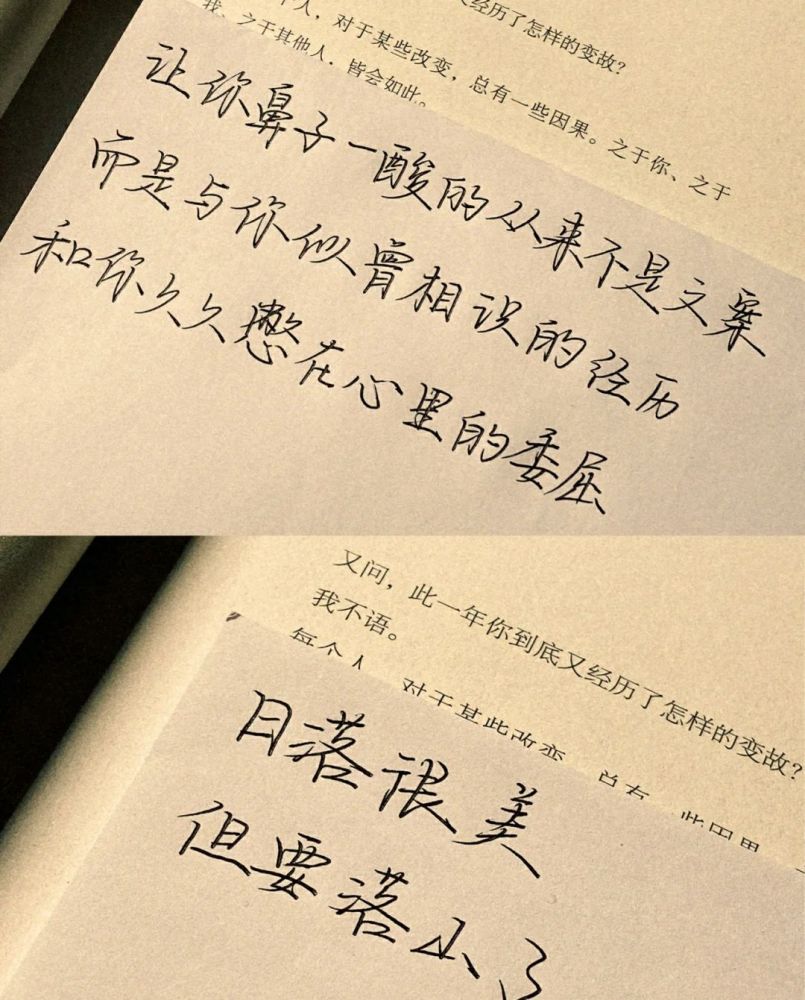 又经历了怎样的变故？
个人，对于某些改变，总有一些因果。之于你、之于
我、之于其他人，皆会如此。
让你鼻子一酸的从来不是文案
而是与你似曾相识的经历
和你久久憋在心里的委屈
又问，此一年你到底又经历了怎样的变故？
我不语。
每个人 对于某些改变 总有一些因果
日落很美
但要落山了